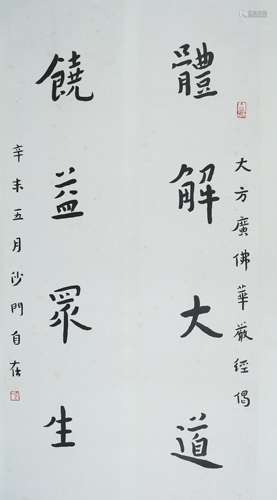 大方廣佛華嚴經偈
體解大道
饒益眾生
辛未五月沙門自在